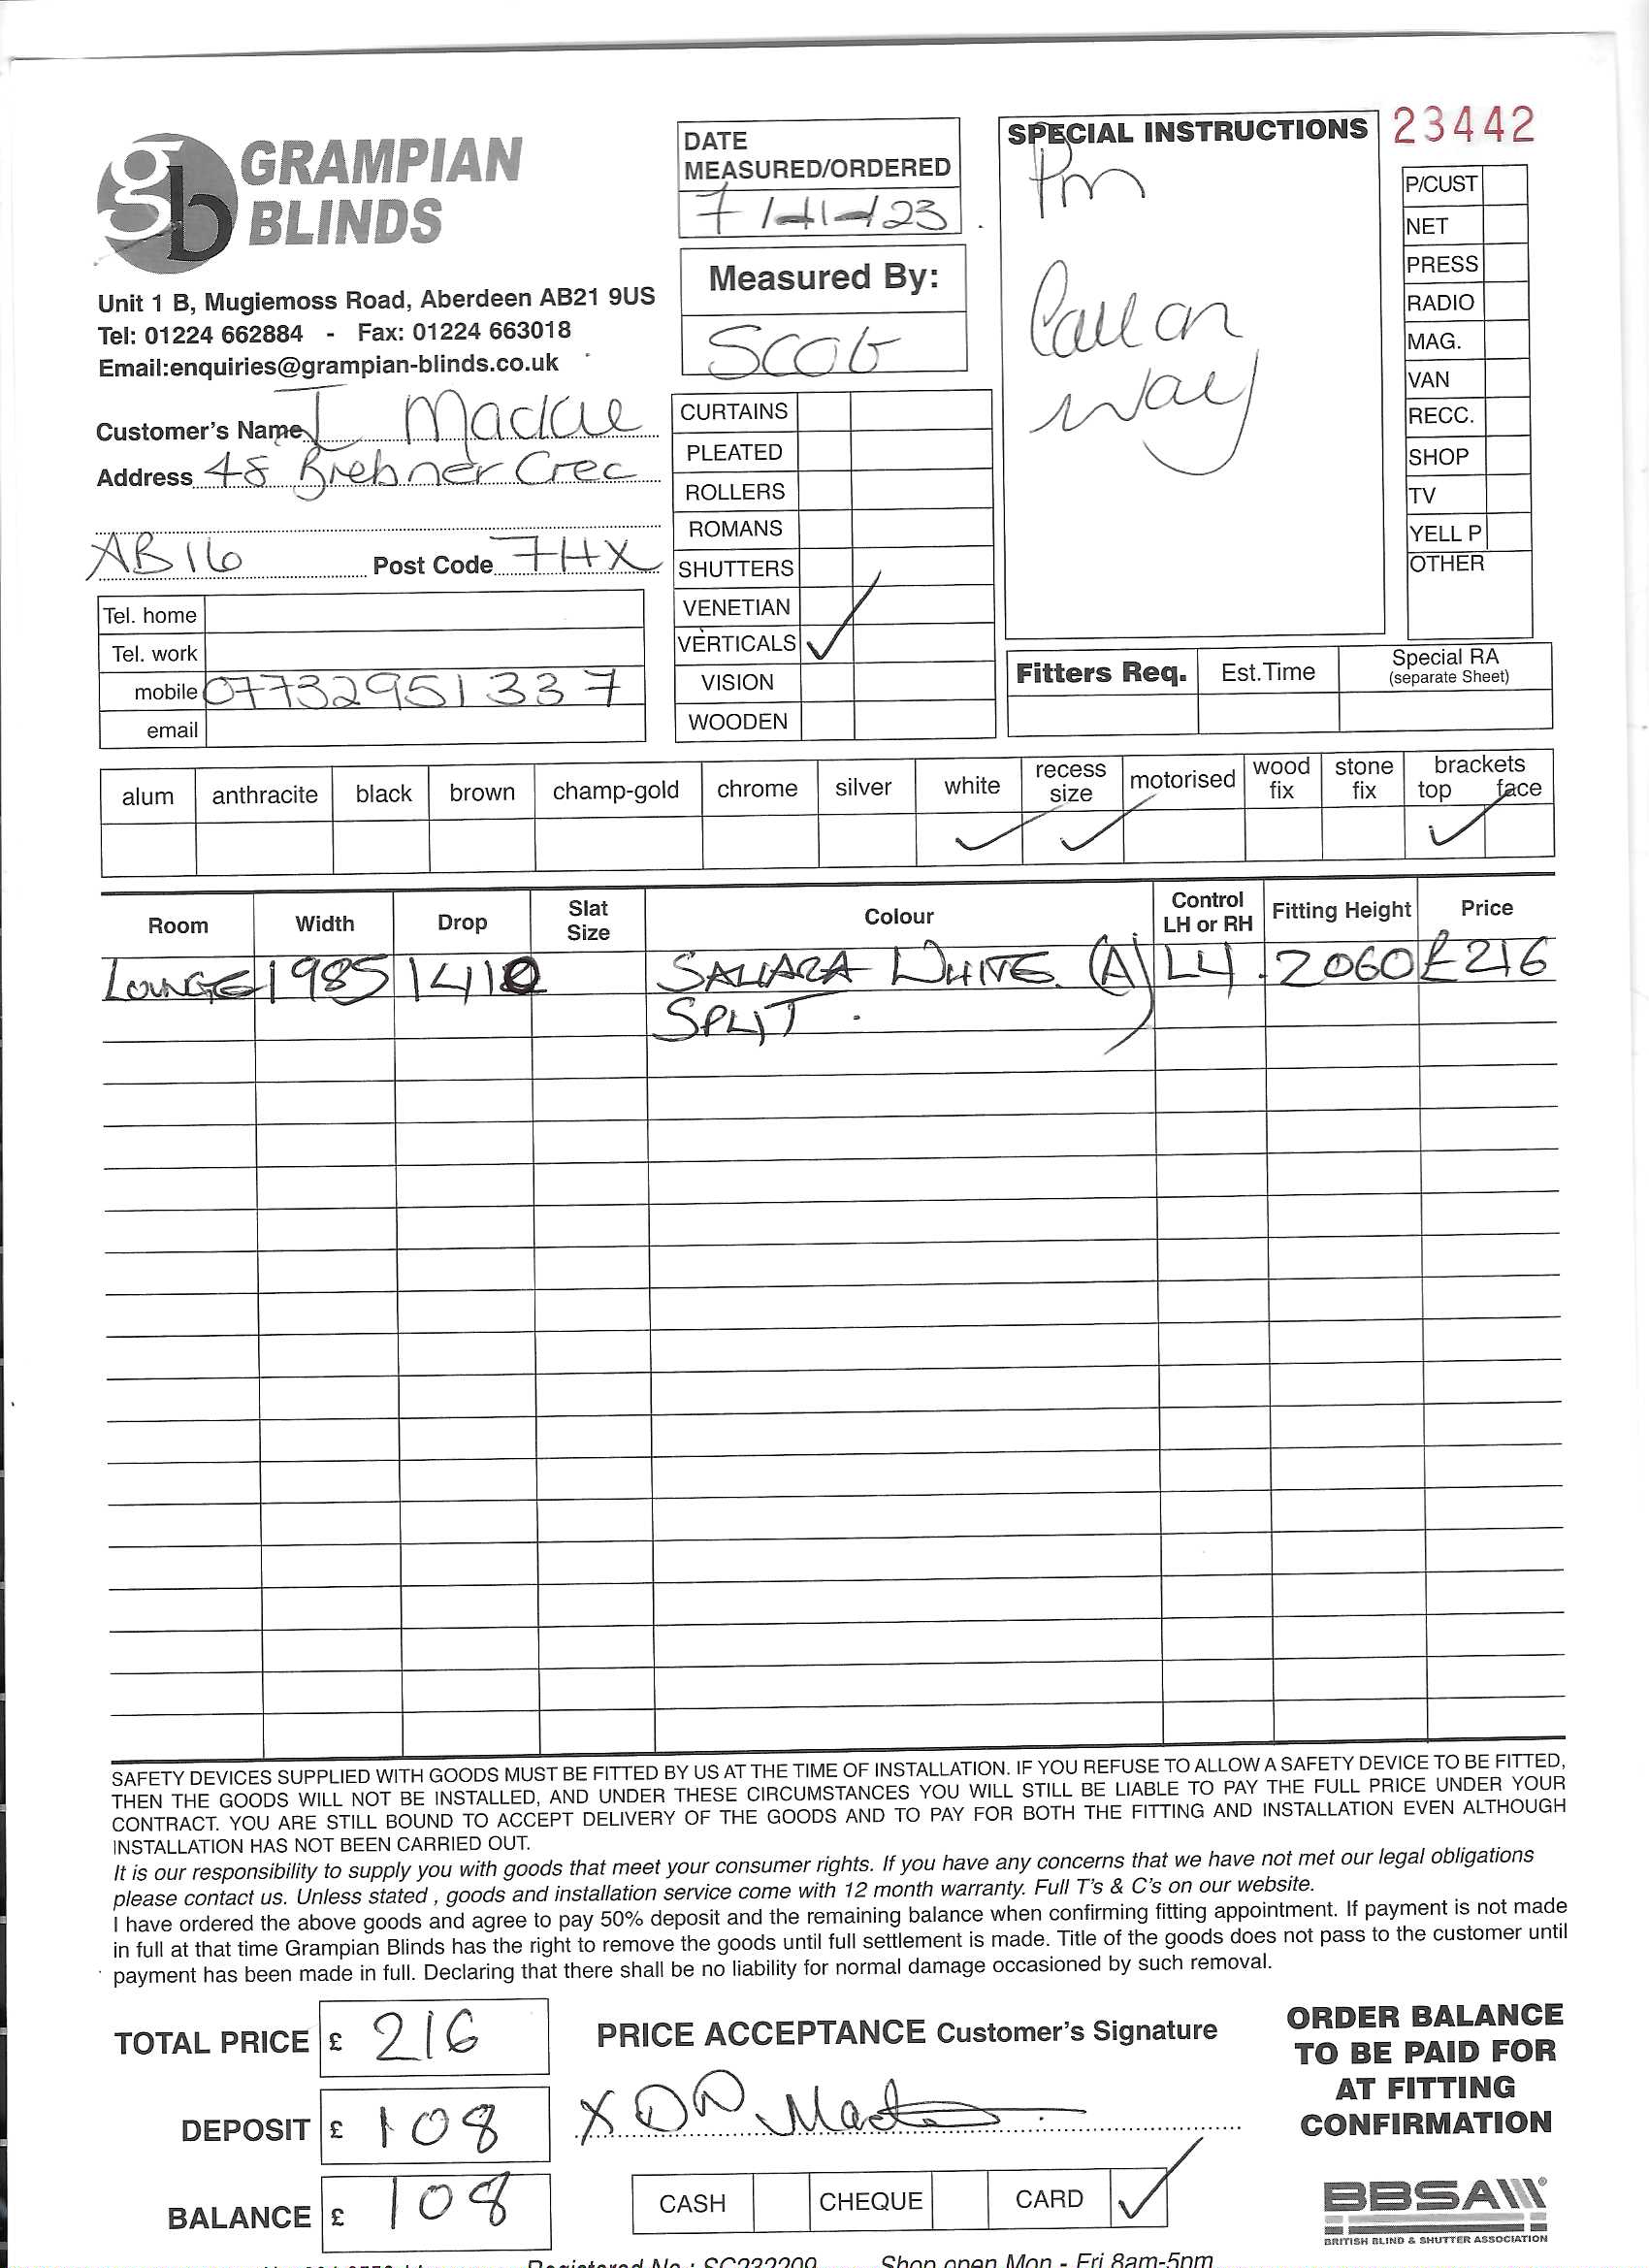 23442
GRAMPIAN
BLINDS
Unit 1 B, Mugiemoss Road, Aberdeen AB21 9US
Tel: 01224 662884 - Fax: 01224 663018
Email:enquiries@grampian-blinds.co.uk
Customer's Name I Mackie
Address 48 Brebner Crec
AB16 Post Code 7HX
Tel. home
Tel. work
mobile 07732951337
email
DATE
MEASURED/ORDERED
7/11/23
Measured By:
CURTAINS
PLEATED
ROLLERS
ROMANS
SHUTTERS
VENETIAN
VERTICALS ✓
VISION
WOODEN
SPECIAL INSTRUCTIONS
Pm
Call on
way
P/CUST
NET
PRESS
RADIO
MAG.
VAN
RECC.
SHOP
TV
YELL P
OTHER
Fitters Req. Est.Time Special RA
(separate Sheet)
alum anthracite black brown champ-gold chrome silver white recess size motorised wood fix stone fix brackets top face
✓ ✓ ✓
Room Width Drop Slat Size Colour Control LH or RH Fitting Height Price
LOUNGE 1985 1410 SAHARA WHITE (A) LH 2060 £216
SPLIT.
SAFETY DEVICES SUPPLIED WITH GOODS MUST BE FITTED BY US AT THE TIME OF INSTALLATION. IF YOU REFUSE TO ALLOW A SAFETY DEVICE TO BE FITTED,
THEN THE GOODS WILL NOT BE INSTALLED, AND UNDER THESE CIRCUMSTANCES YOU WILL STILL BE LIABLE TO PAY THE FULL PRICE UNDER YOUR
CONTRACT. YOU ARE STILL BOUND TO ACCEPT DELIVERY OF THE GOODS AND TO PAY FOR BOTH THE FITTING AND INSTALLATION EVEN ALTHOUGH
INSTALLATION HAS NOT BEEN CARRIED OUT.
It is our responsibility to supply you with goods that meet your consumer rights. If you have any concerns that we have not met our legal obligations
please contact us. Unless stated , goods and installation service come with 12 month warranty. Full T's & C's on our website.
I have ordered the above goods and agree to pay 50% deposit and the remaining balance when confirming fitting appointment. If payment is not made
in full at that time Grampian Blinds has the right to remove the goods until full settlement is made. Title of the goods does not pass to the customer until
payment has been made in full. Declaring that there shall be no liability for normal damage occasioned by such removal.
TOTAL PRICE £ 216
DEPOSIT £ 108
BALANCE £ 108
PRICE ACCEPTANCE Customer's Signature
X
CASH CHEQUE CARD ✓
ORDER BALANCE
TO BE PAID FOR
AT FITTING
CONFIRMATION
BBSA
BRITISH BLIND & SHUTTER ASSOCIATION
Shop open Mon - Fri 8am-5pm